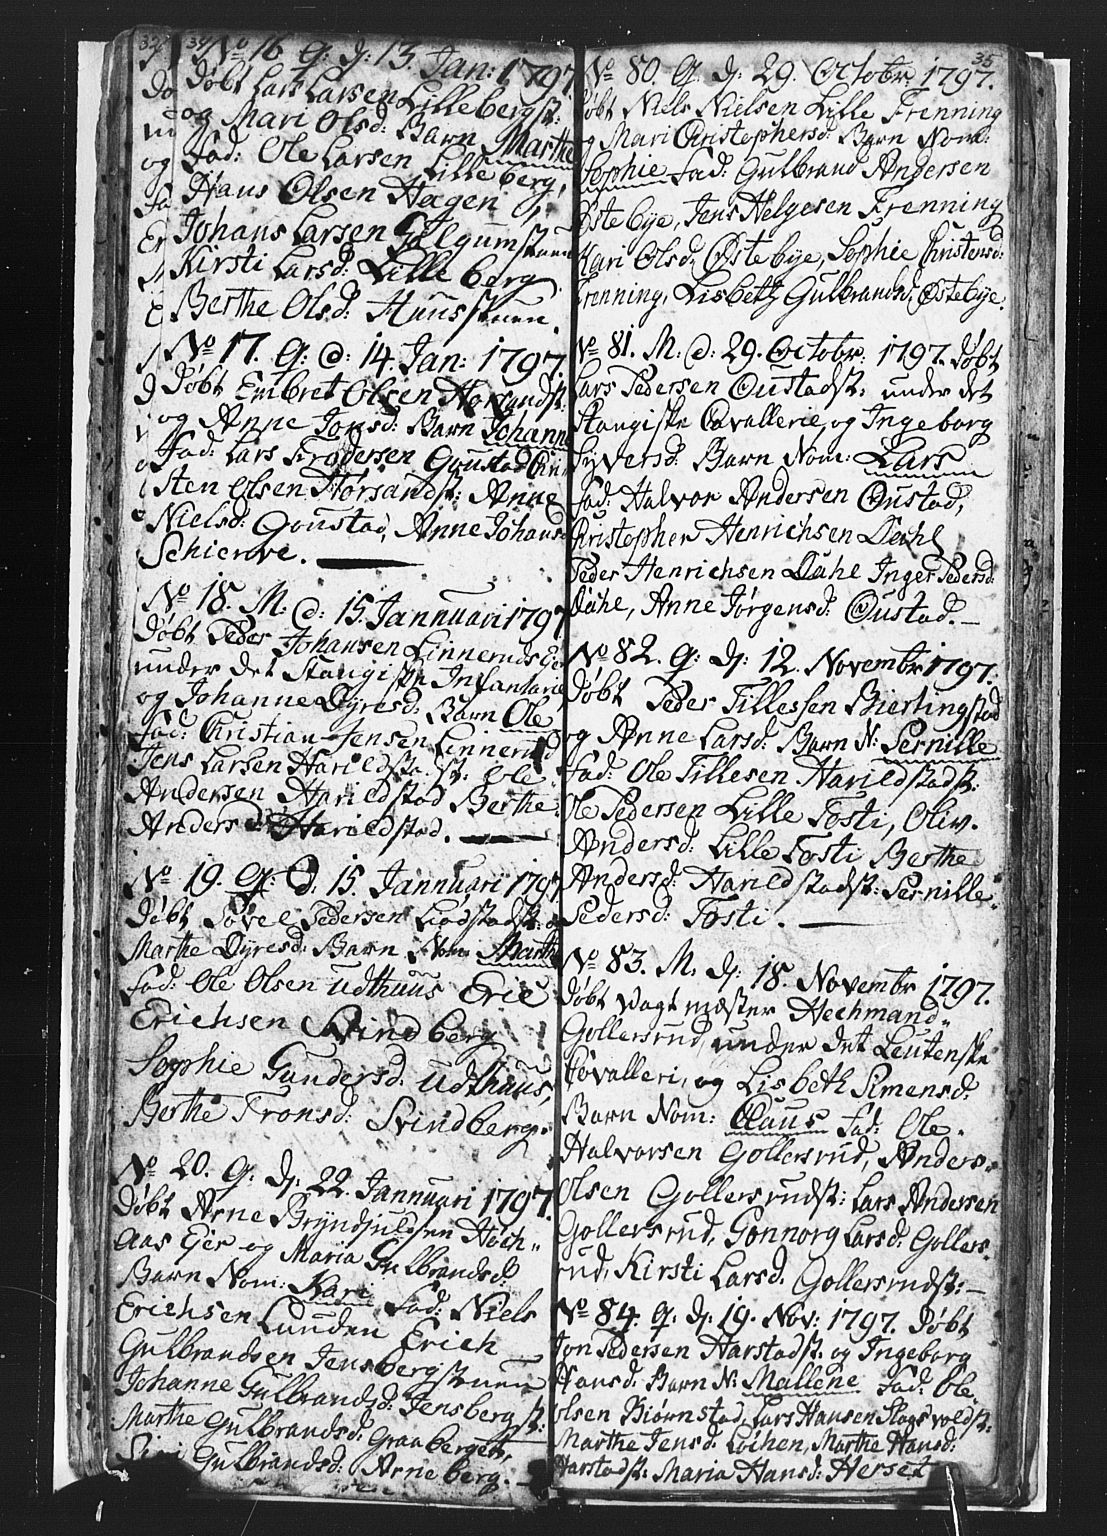 34
No 16. G: d: 13. Jan: 1797.
Døbt Lars Larsen Lillebergst:
og Mari Olsd: Barn Marthe
Fad: Ole Larsen Lilleberg,
Hans Olsen Hagen
Johans Larsen Galgumstuen
Kirsti Larsd: Lilleberg
Berthe Olsd: Huusstuen.
No 17. G: d: 14. Jan: 1797.
Døbt Embret Olsen Horsandst:
og Anne Jonsd: Barn Johanne
Fad: Lars Frodersen Goustad
Sten Olsen Horsandst: Anne
Nielsd: Goustad, Anne Johansd:
Schierve.
No 18. M. d: 15. Jannuari 1797
Døbt Peder Johansen Linneruds Eie
under det Stangiske Infanterie
og Johanne Dyresd: Barn Ole
Fad: Christian Jensen Linnerud
Jens Larsen Harildstadst: Ole
Andersen Harildstad Berthe
Andersd: Harildstad.
No 19. G: d. 15. Jannuari 1797
Døbt Søvel Pedersen Liødstadst: og
Marthe Dyresd: Barn Nom: Marthe
Fad: Ole Olsen Udthuus Eric
Erichsen Svindberg
Sophie Gundersd: Udthuus,
Berthe Tronsd: Svindberg.
No 20. G: d: 22. Jannuari 1797.
Døbt Arne Bryndjuldsen Høch-
aas Eier og Maria Gulbrandsd:
Barn Nom: Kari Fad: Niels
Erichsen Lunden Erich
Gulbrandsen Jensbergstuen
Johanne Gulbrandsd: Jensbergst:
Marthe Gulbrandsd: Graabergets,
Siri Gulbrandsd: Arneberg.
35
No 80. G: d: 29. Octobr. 1797.
Døbt Niels Nielsen Lille Frenning
og Mari Christophersd: Barn Nom:
Sophie Fad: Gulbrand Andersen
Østebye, Jens Helgesen Frenning
Kari Olsd: Østebye, Sophie Christensd:
Frenning, Lisbeth Gulbrandsd: Østebye.
No 81. M. d: 29. Octobr. 1797. Døbt
Lars Pedersen Oustadst: under det
Stangiske Cavallerie, og Ingeborg
Syversd: Barn Nom: Lars
Fad: Halvor Andersen Oustad,
Christopher Henrichsen Dæhl
Peder Henrichsen Dæhl Inger Pedersd:
Dæhl, Anne Jørgensd: Oustad.
No 82. G: d: 12. Novembr 1797.
Døbt Peder Tillessen Biertingstad
og Anne Larsd: Barn N: Pernille
Fad: Ole Tillesen Harildstadst:
Ole Pedersen Lille Tosti, Oliv.
Andersd: Lille Tosti Berthe
Andersd: Harildstadst: Pernille
Pedersd: Tosti.
No 83. M. d: 18. Novembr 1797.
Døbt Vagtmæster Hechmand
Gollersrud under det Leutenske
Cavalleri, og Lisbeth Simensd:
Barn Nom: Claus Fad: Ole
Halvorsen Gollersrud, Anders
Olsen Gollersrudst: Lars Andersen
Gollersrud, Gonnorg Larsd: Gollers-
rud, Kirsti Larsd: Gollersrudst:
No 84. G: d: 19. Nov: 1797. Døbt
Jon Pedersen Harstadst: og Ingeborg
Hansd: Barn N: Mallene Fad: Ole
Olsen Biørnstad, Lars Hansen Slagsvoldst:
Marthe Jensd: Løchen, Marthe Hansd:
Harstadst: Maria Hansd: Herset